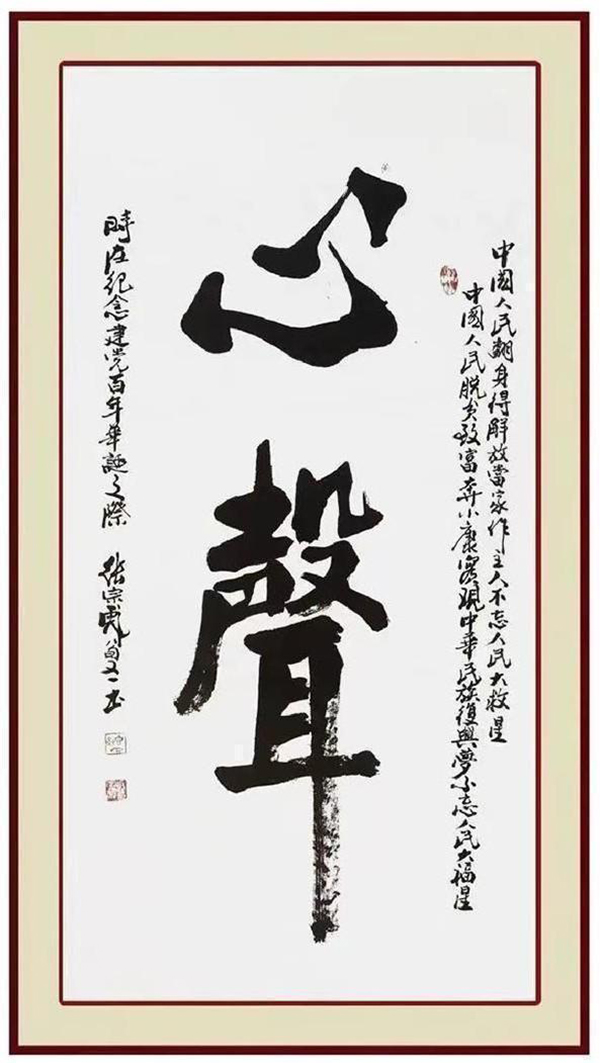 中國人民翻身得解放當家作主人不忘人民大救星
中國人民脱贫致富奔小康實現中華民族復興夢不忘人民大福星
心聲
時在紀念建党百年華誕之際 张宗彪书